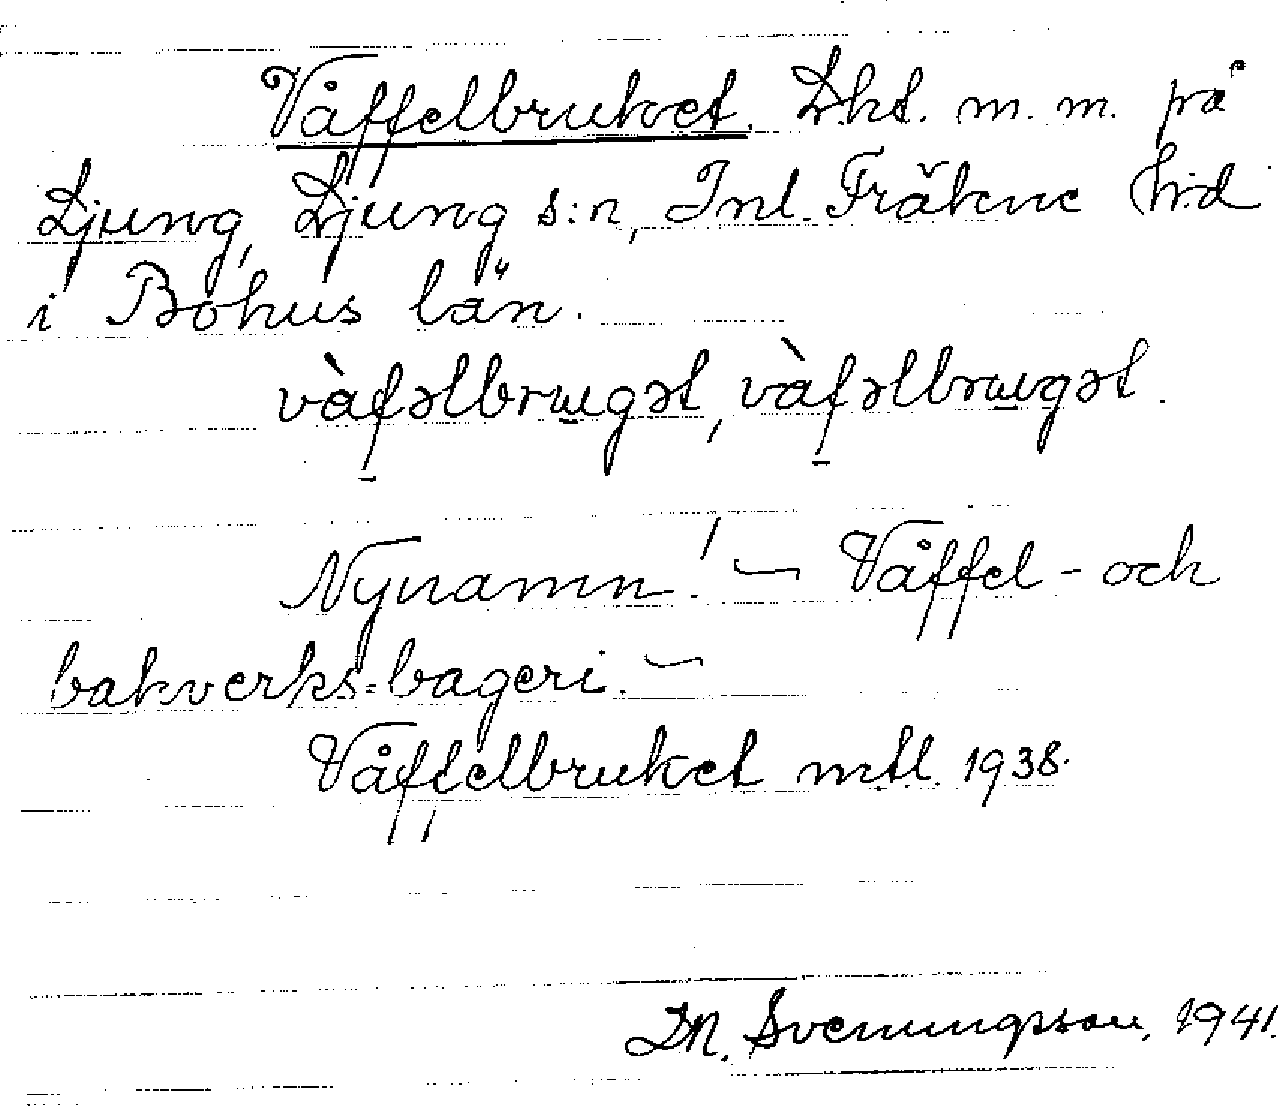 Våffelbruket. Lht. m. m. på
Ljung, Ljung s:n, Inl. Fräkne h:d
i Bohus län.
vàfəlbrɯgət, vàfəlbrɯgət.
Nynamn! ~ Våffel- och
bakverks-bageri. ~
Våffelbruket mtl. 1938.
D.N. Svenungsson, 1941.